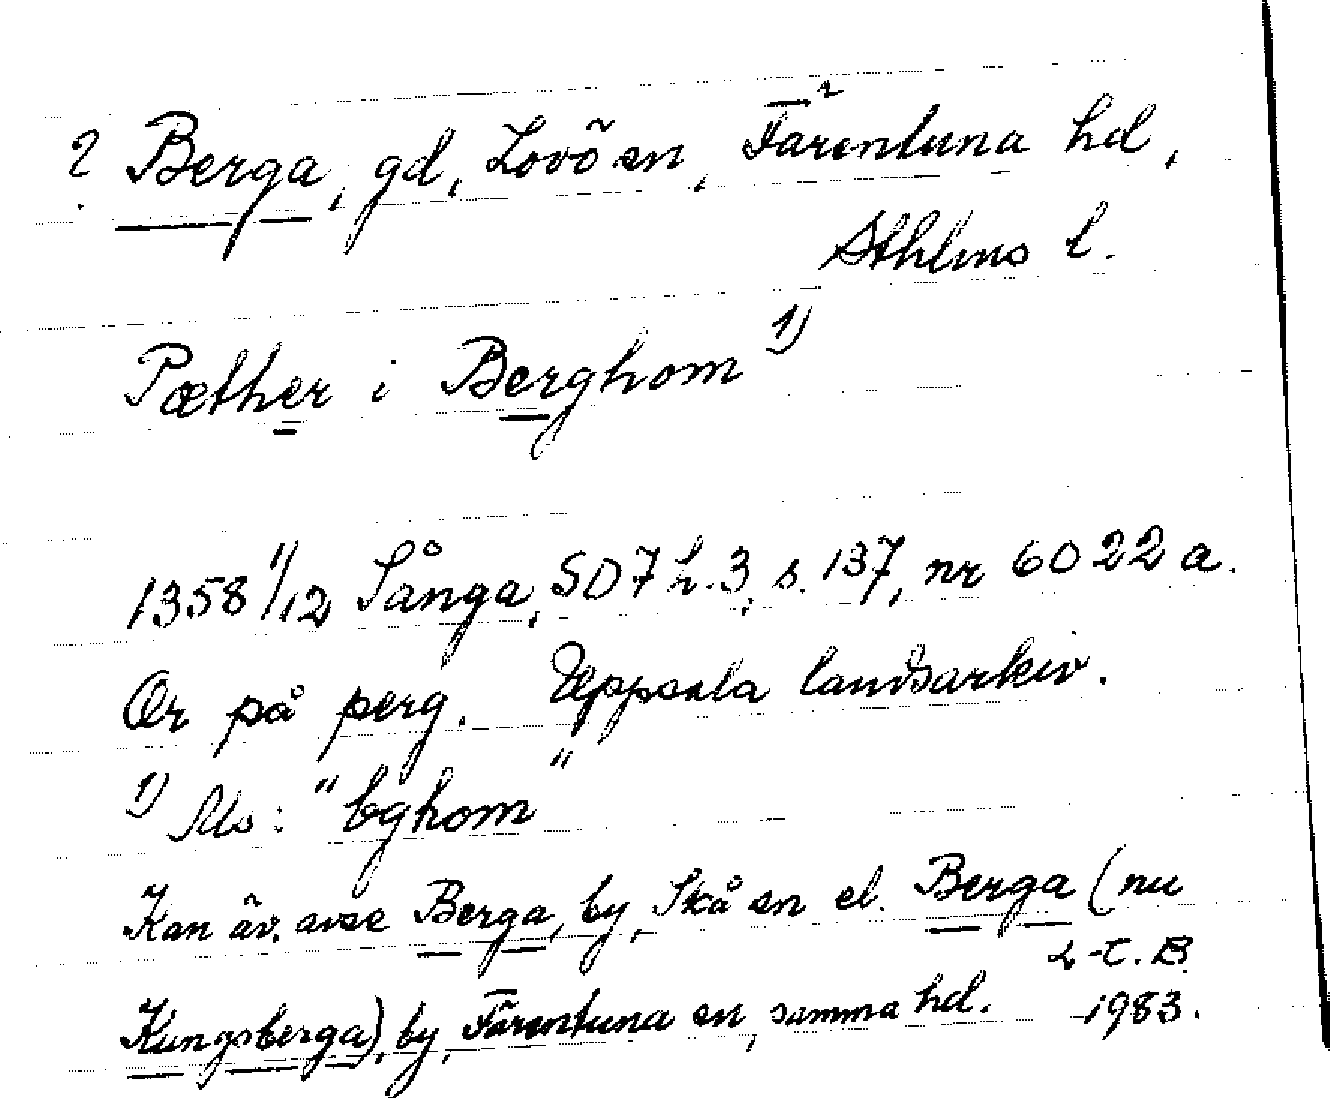 ? Berga, gd, Lovö sn, Färentuna hd,
Sthlms l.
Pæther i Berghom 1)
1358 1/12 Sånga, SD 7 h. 3, s. 137, nr 6022 a.
Or på perg. Uppsala landsarkiv.
1) Ms: "bghom"
Kan äv. avse Berga, by, Skå sn el. Berga (nu
Kungsberga), by, Färentuna sn, samma hd.
L-C. B.
1983.